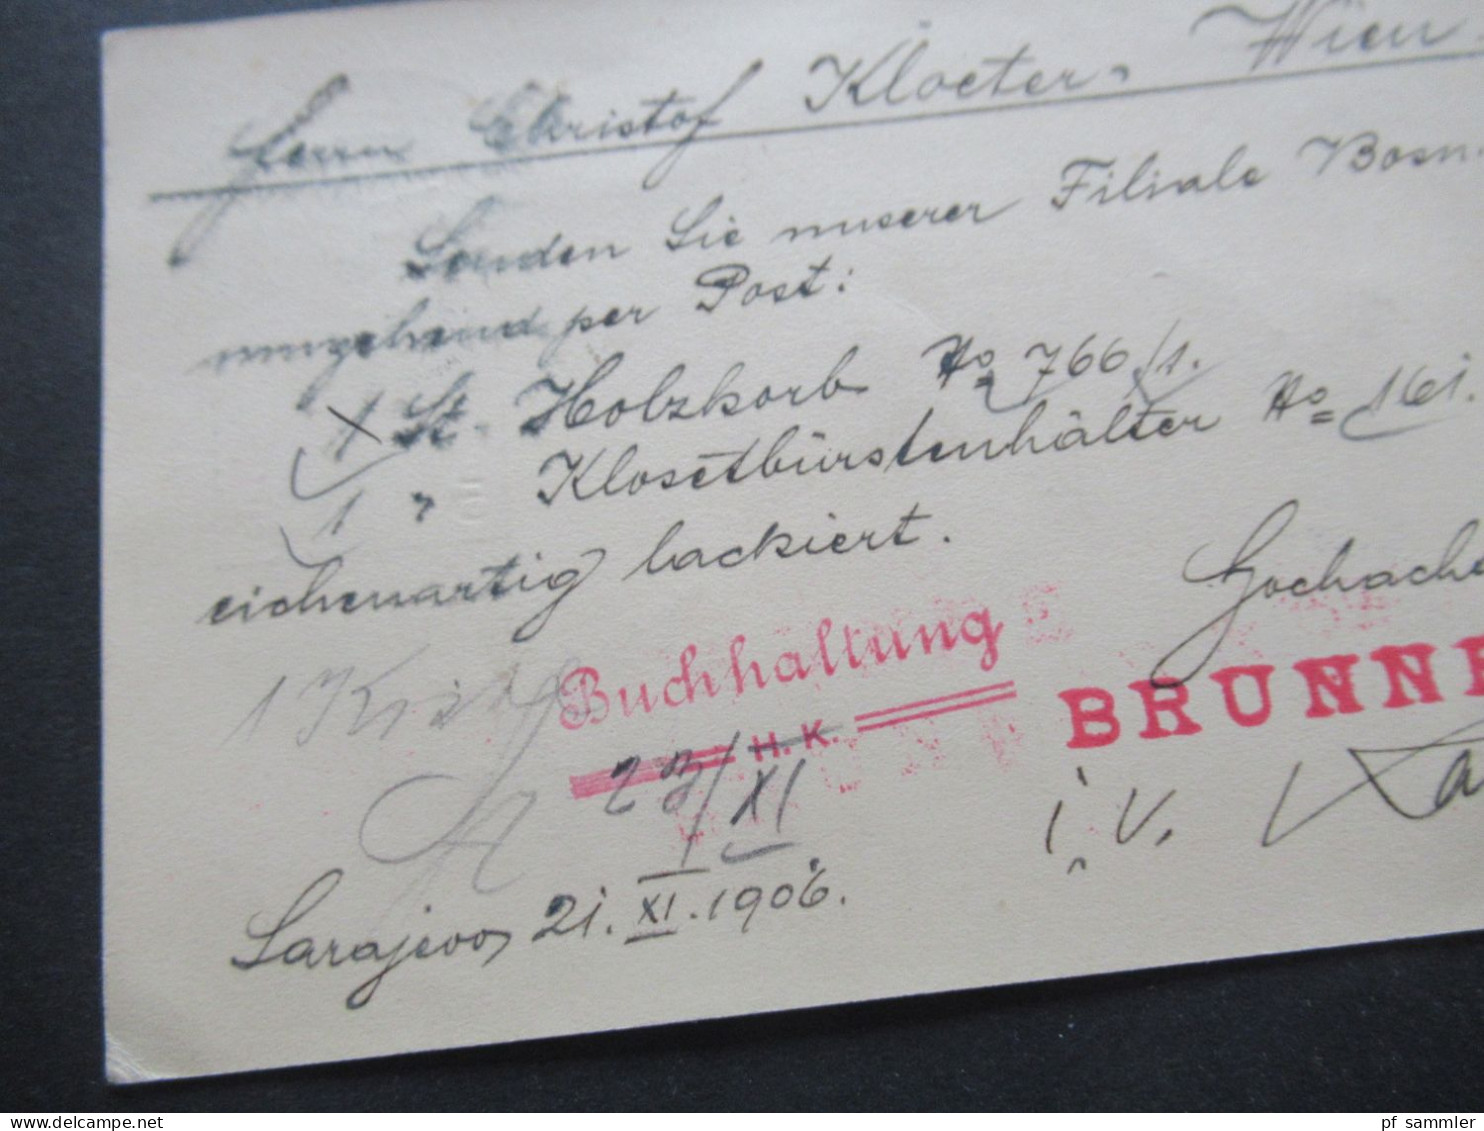 Herrn Christof Kloeter, Wien
Senden Sie unserer Filiale Bosn.
umgehend per Post:
1 St. Holzkorb No 766/1.
1 " Klosetbürstenhälter No 161.
eichenartig lackiert.
Hochache
Buchhaltung
H. K.
BRUNNE
23/XI
i. V.
Sarajevo, 21. XI. 1906.
pf sammler